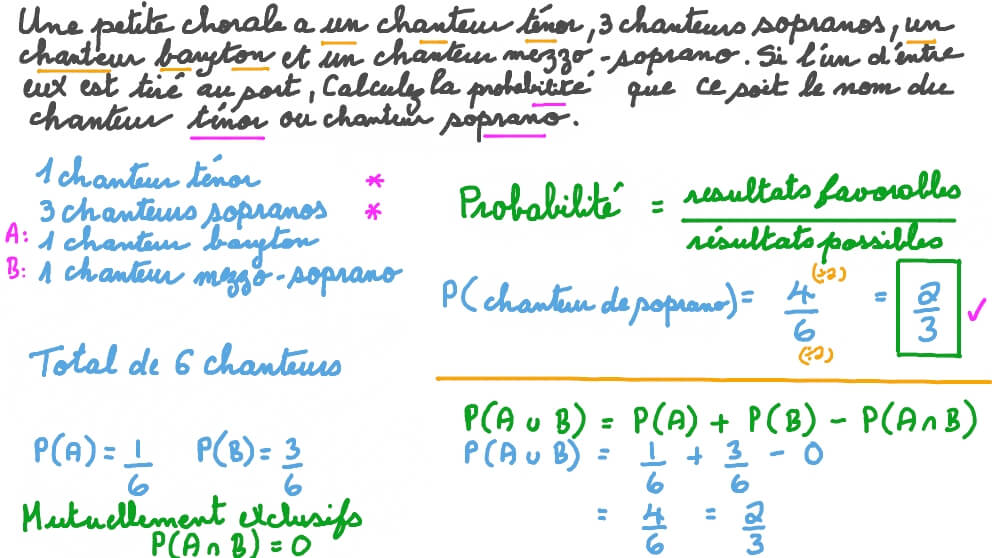 Une petite chorale a un chanteur ténor, 3 chanteurs sopranos, un
chanteur baryton et un chanteur mezzo-soprano. Si l'un d'entre
eux est tiré au sort, Calculez la probabilité que ce soit le nom du
chanteur ténor ou chanteur soprano.
1 chanteur ténor *
3 chanteurs sopranos *
A: 1 chanteur baryton
B: 1 chanteur mezzo-soprano
Total de 6 chanteurs
P(A) = 1/6 P(B) = 3/6
Mutuellement exclusifs
P(A ∩ B) = 0
Probabilité = resultats favorables / résultats possibles
P(chanteur de soprano) = 4 (÷2) / 6 (÷2) = 2/3 ✓
P(A ∪ B) = P(A) + P(B) - P(A ∩ B)
P(A ∪ B) = 1/6 + 3/6 - 0
= 4/6 = 2/3